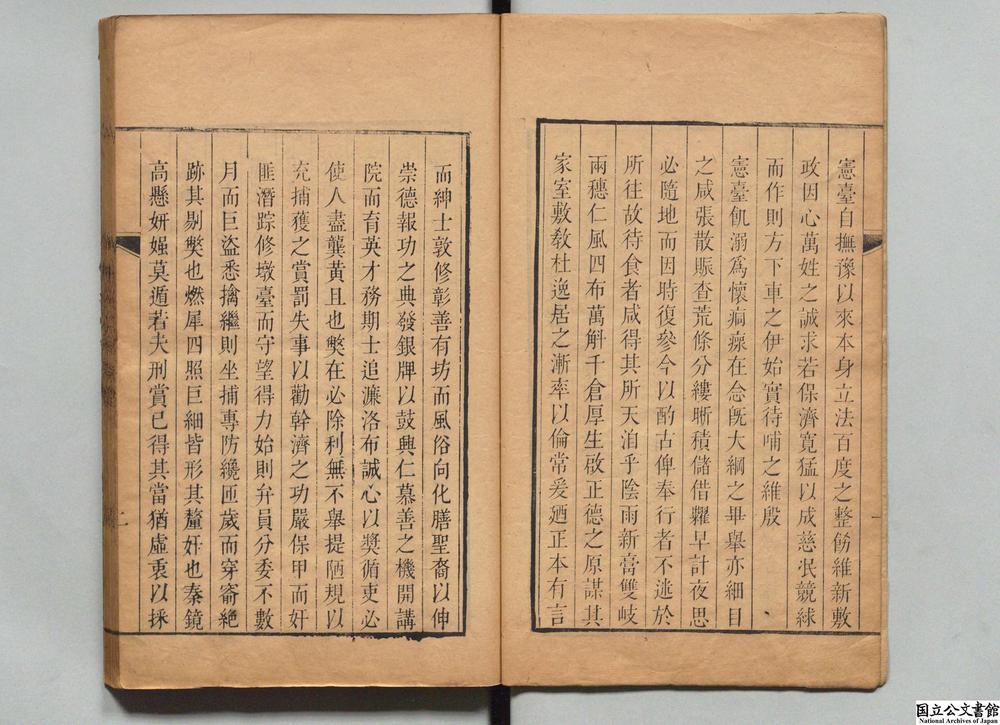 憲臺自撫豫以來本身立法百度之整飭維新敷
政因心萬姓之誠求若保濟寛猛以成慈泯競絿
而作則方下車之伊始實待哺之維殷
憲臺飢溺爲懷痌瘝在念旣大綱之畢舉亦細目
之咸張散賑查荒條分縷晰積儲借糶早計夜思
必隨地而因時復參今以酌古俾奉行者不逃於
所往故待食者咸得其所天洎乎陰雨新膏雙岐
兩穗仁風四布萬斛千倉厚生啟正德之原謀其
家室敷敎杜逸居之漸率以倫常爰廼正本有言
而紳士敦修彰善有坊而風俗向化膳聖裔以伸
崇德報功之典發銀牌以鼓興仁慕善之機開講
院而育英才務期士追濂洛布誠心以奬循吏必
使人盡龔黄且也獘在必除利無不舉提陋規以
充捕獲之賞罰失事以勸幹濟之功嚴保甲而奸
匪潛踪修墩臺而守望得力始則弁員分委不數
月而巨盜悉擒繼則坐捕專防纔匝歲而穿窬絶
跡其剔獘也燃犀四照巨細皆形其釐奸也秦鏡
高懸妍媸莫遁若夫刑賞已得其當猶虛衷以採
一
二
国立公文書館
National Archives of Japan